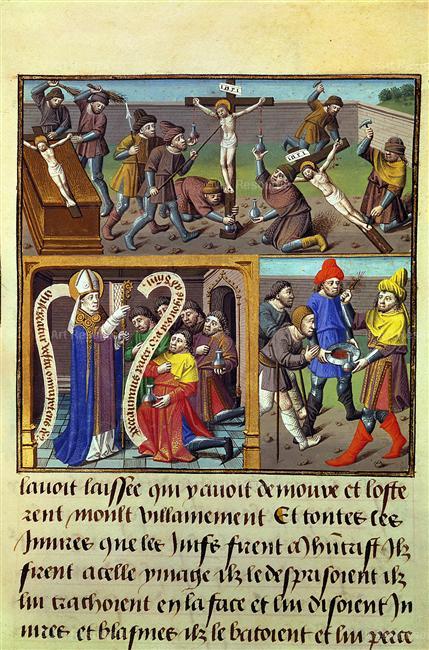 inri
inri
pater ora pro nobis
lavoit laissee qui yavoit demoure et loste
rent moult villainement Et toutes ces
Iniures que les Iuifs firent a Jhucrist Ilz
firent a celle ymage ilz le desprisoient ilz
lui crachoient en la face et lui disoient In
iures et blasmes ilz le batoient et lui perce
Art Resource